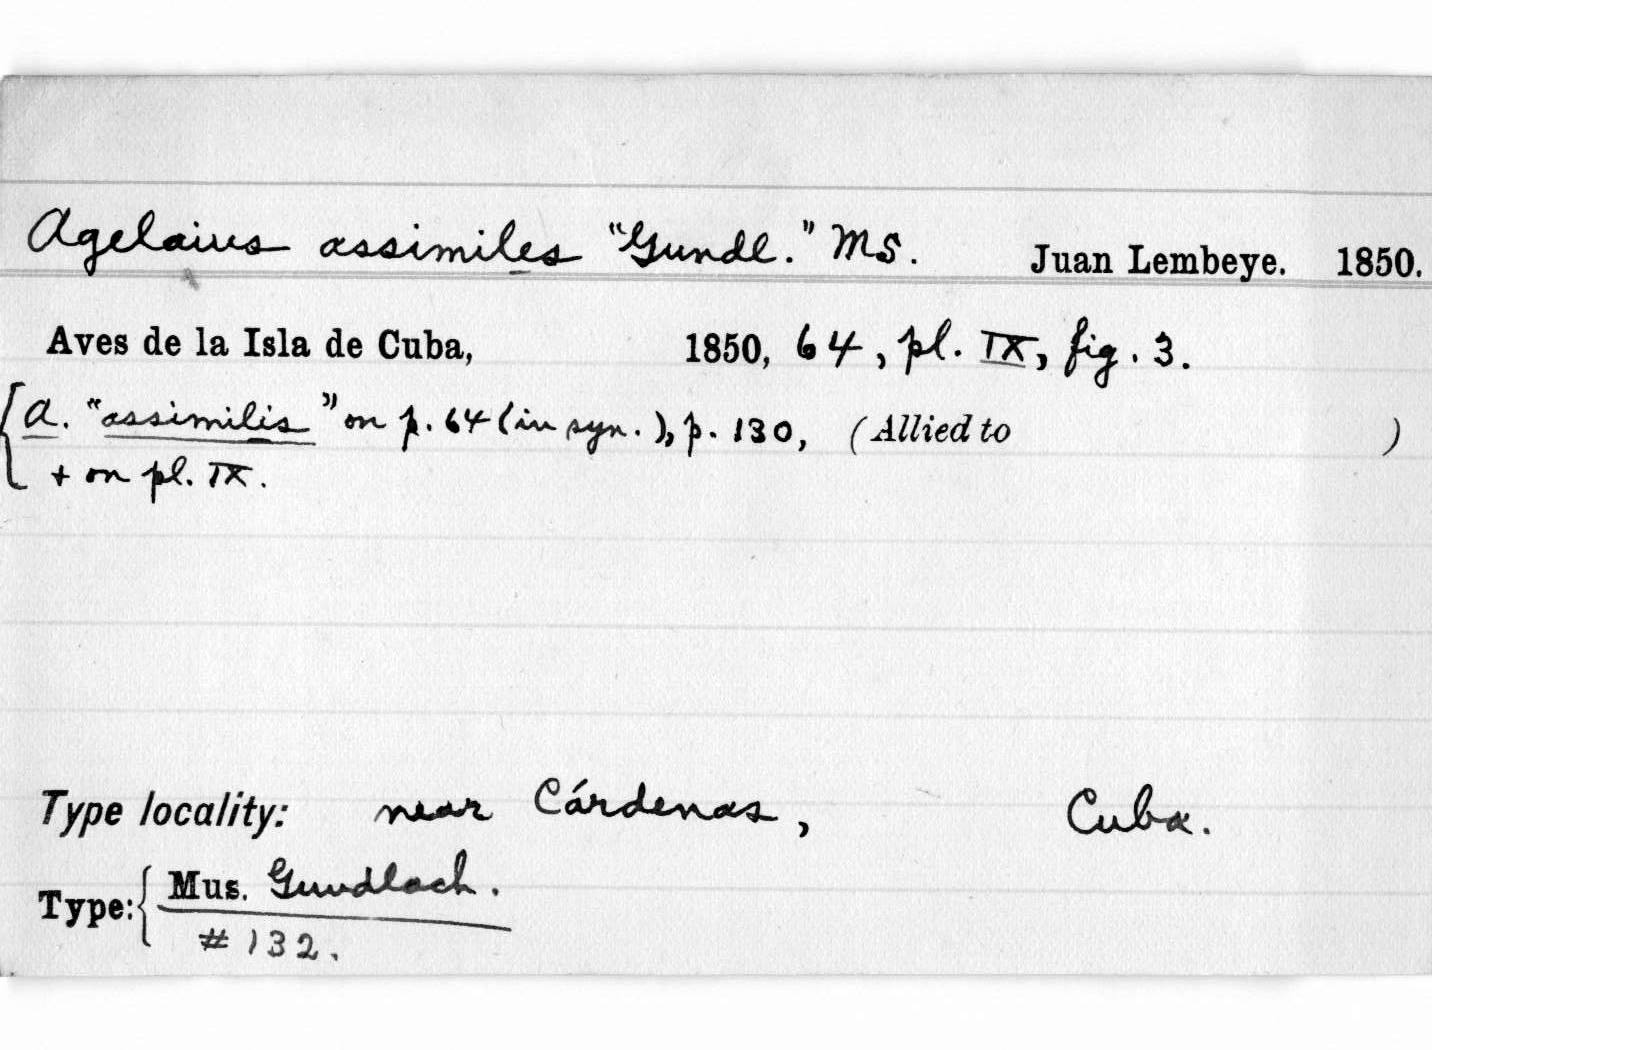 Agelaius assimiles "Gundl." MS. Juan Lembeye. 1850.
Aves de la Isla de Cuba, 1850, 64, pl. IX, fig. 3.
{ A. "assimilis" on p. 64 (in syn.), p. 130, (Allied to )
+ on pl. IX.
Type locality: near Cárdenas, Cuba.
Type: { Mus. Gundlach.
# 132.